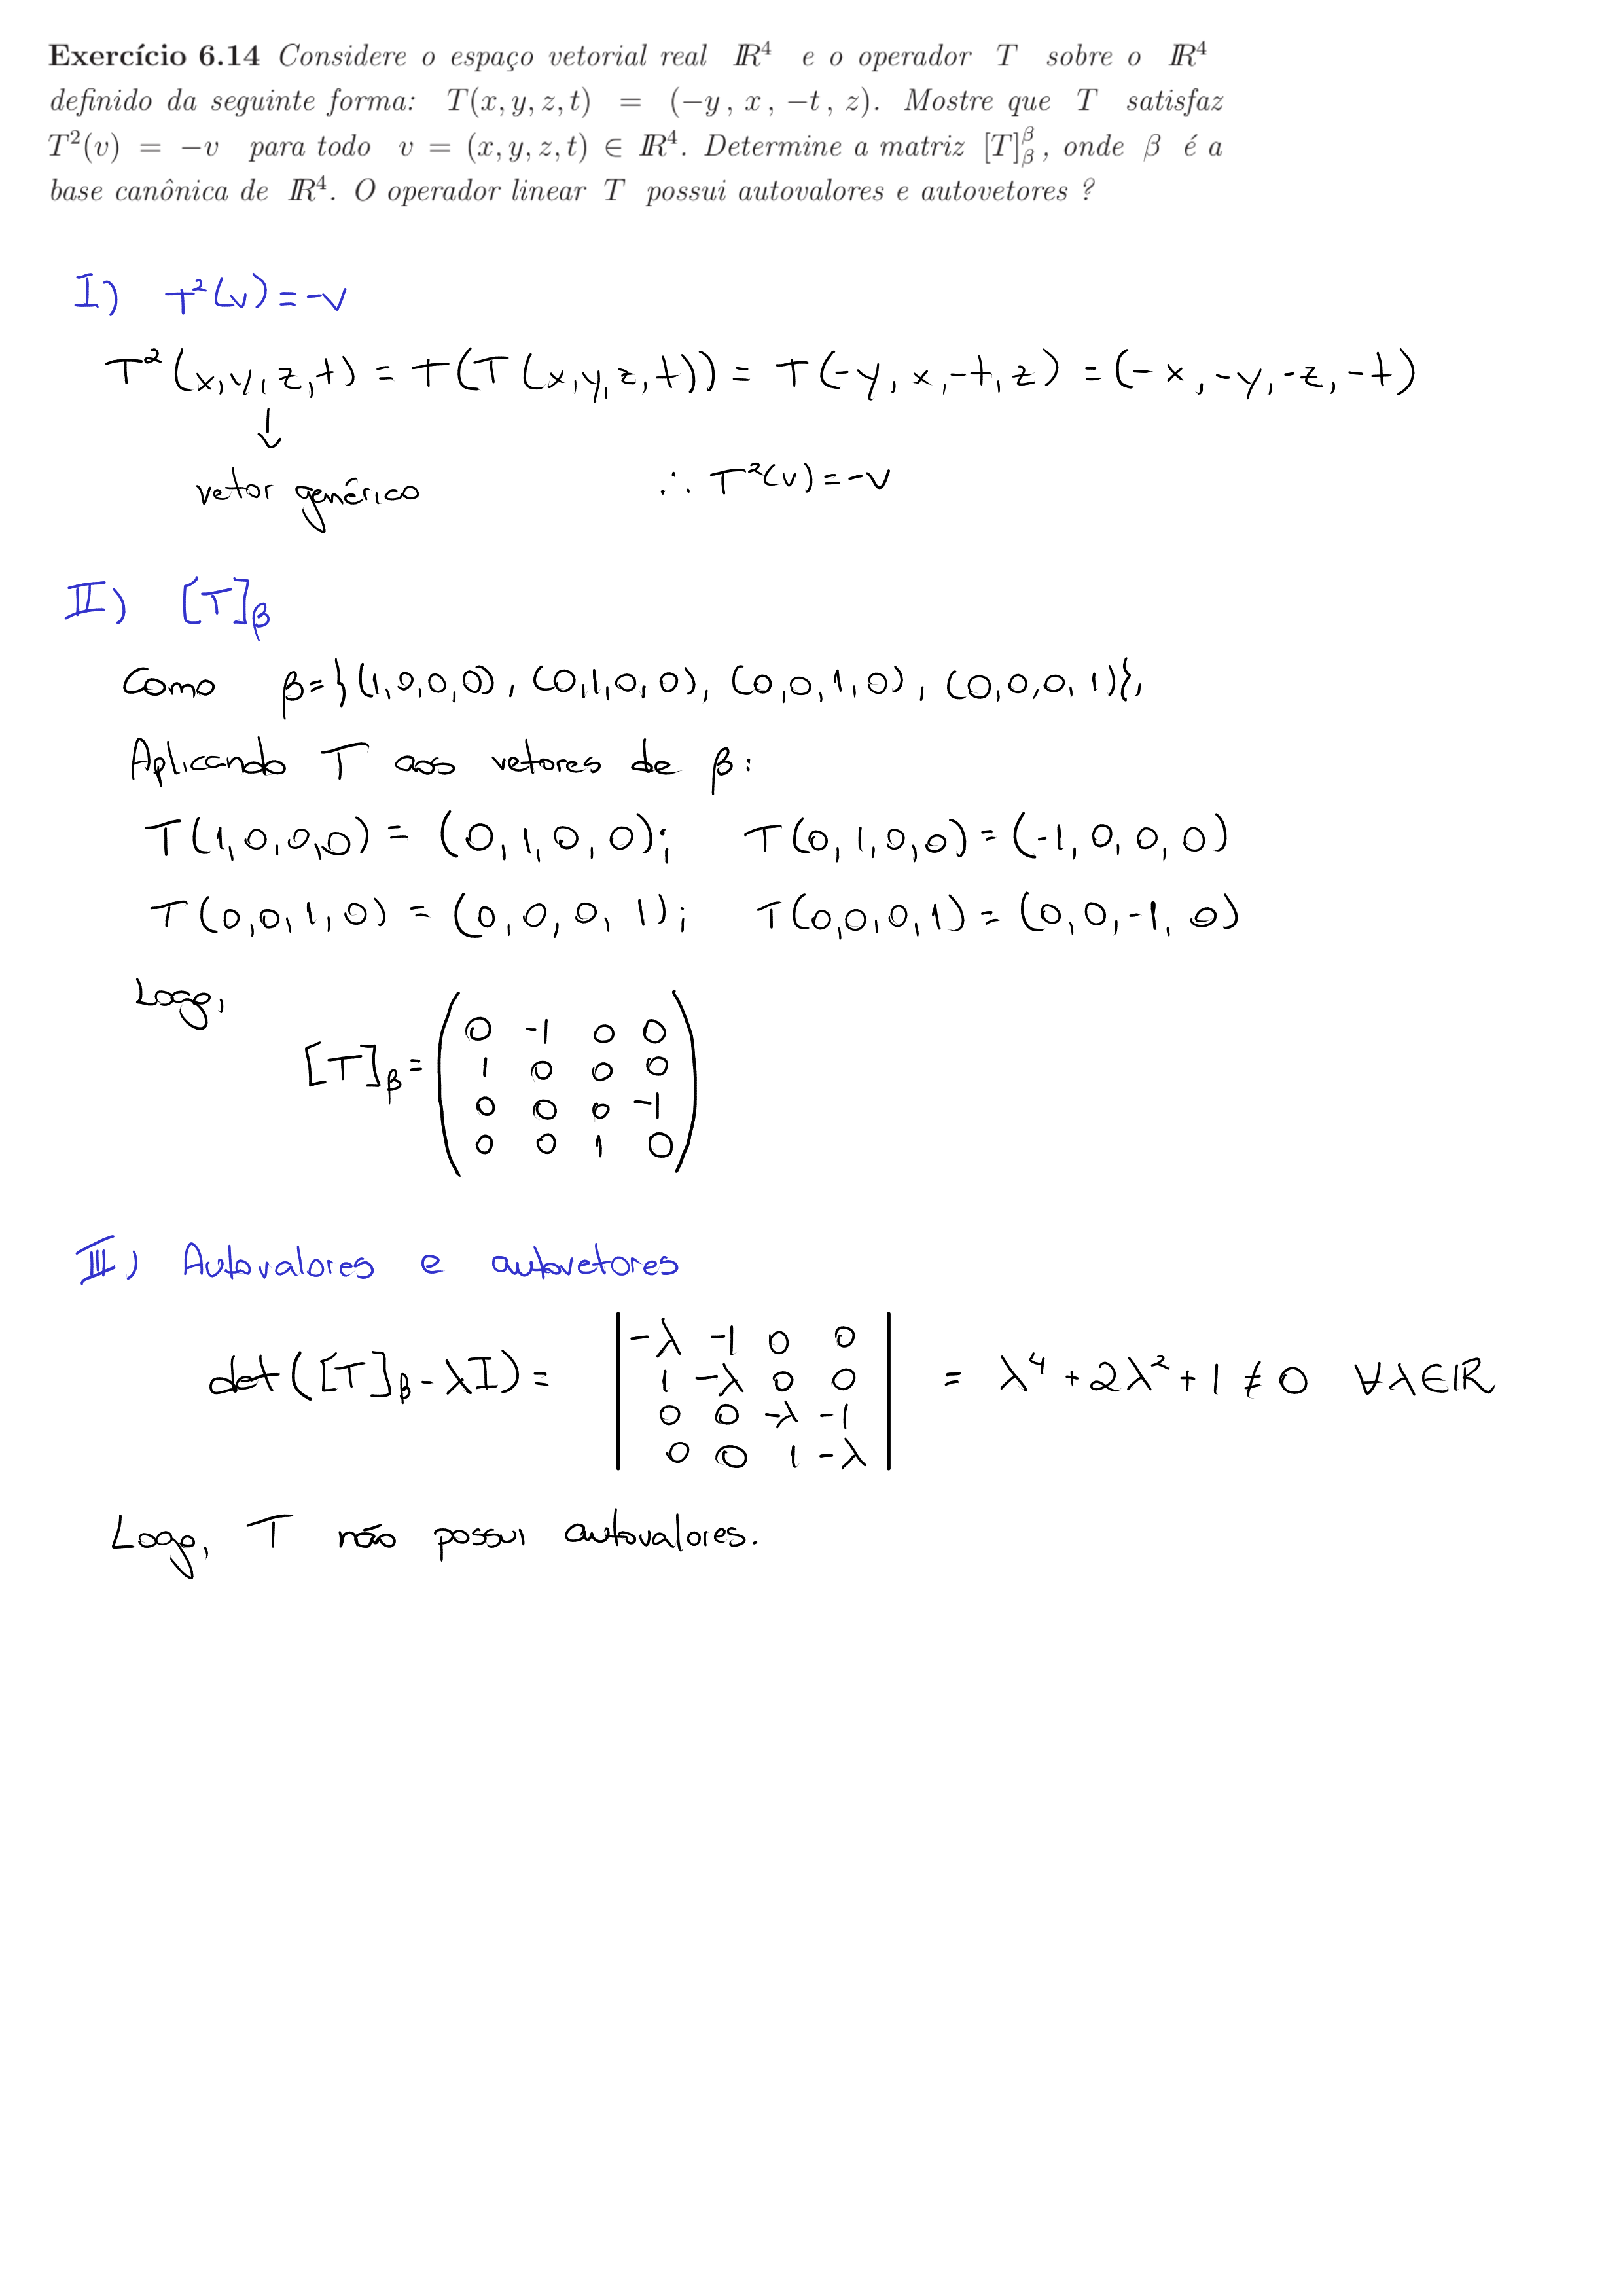 Exercício 6.14 Considere o espaço vetorial real ℝ⁴ e o operador T sobre o ℝ⁴
definido da seguinte forma: T(x, y, z, t) = (−y , x , −t , z). Mostre que T satisfaz
T²(v) = −v para todo v = (x, y, z, t) ∈ ℝ⁴. Determine a matriz [T]^β_β , onde β é a
base canônica de ℝ⁴. O operador linear T possui autovalores e autovetores ?
I) T²(v) = -v
T²(x,y,z,t) = T(T(x,y,z,t)) = T(-y, x,-t, z) = (-x, -y, -z, -t)
↓
vetor genérico ∴ T²(v) = -v
II) [T]_β
Como β={(1,0,0,0), (0,1,0,0), (0,0,1,0), (0,0,0,1)},
Aplicando T aos vetores de β:
T(1,0,0,0) = (0,1,0,0); T(0,1,0,0) = (-1,0,0,0)
T(0,0,1,0) = (0,0,0,1); T(0,0,0,1) = (0,0,-1,0)
Logo,
[T]_β =
0 -1 0 0
1 0 0 0
0 0 0 -1
0 0 1 0
III) Autovalores e autovetores
det([T]_β - λI) =
-λ -1 0 0
1 -λ 0 0
0 0 -λ -1
0 0 1 -λ
= λ⁴ + 2λ² + 1 ≠ 0 ∀λ∈ℝ
Logo, T não possui autovalores.